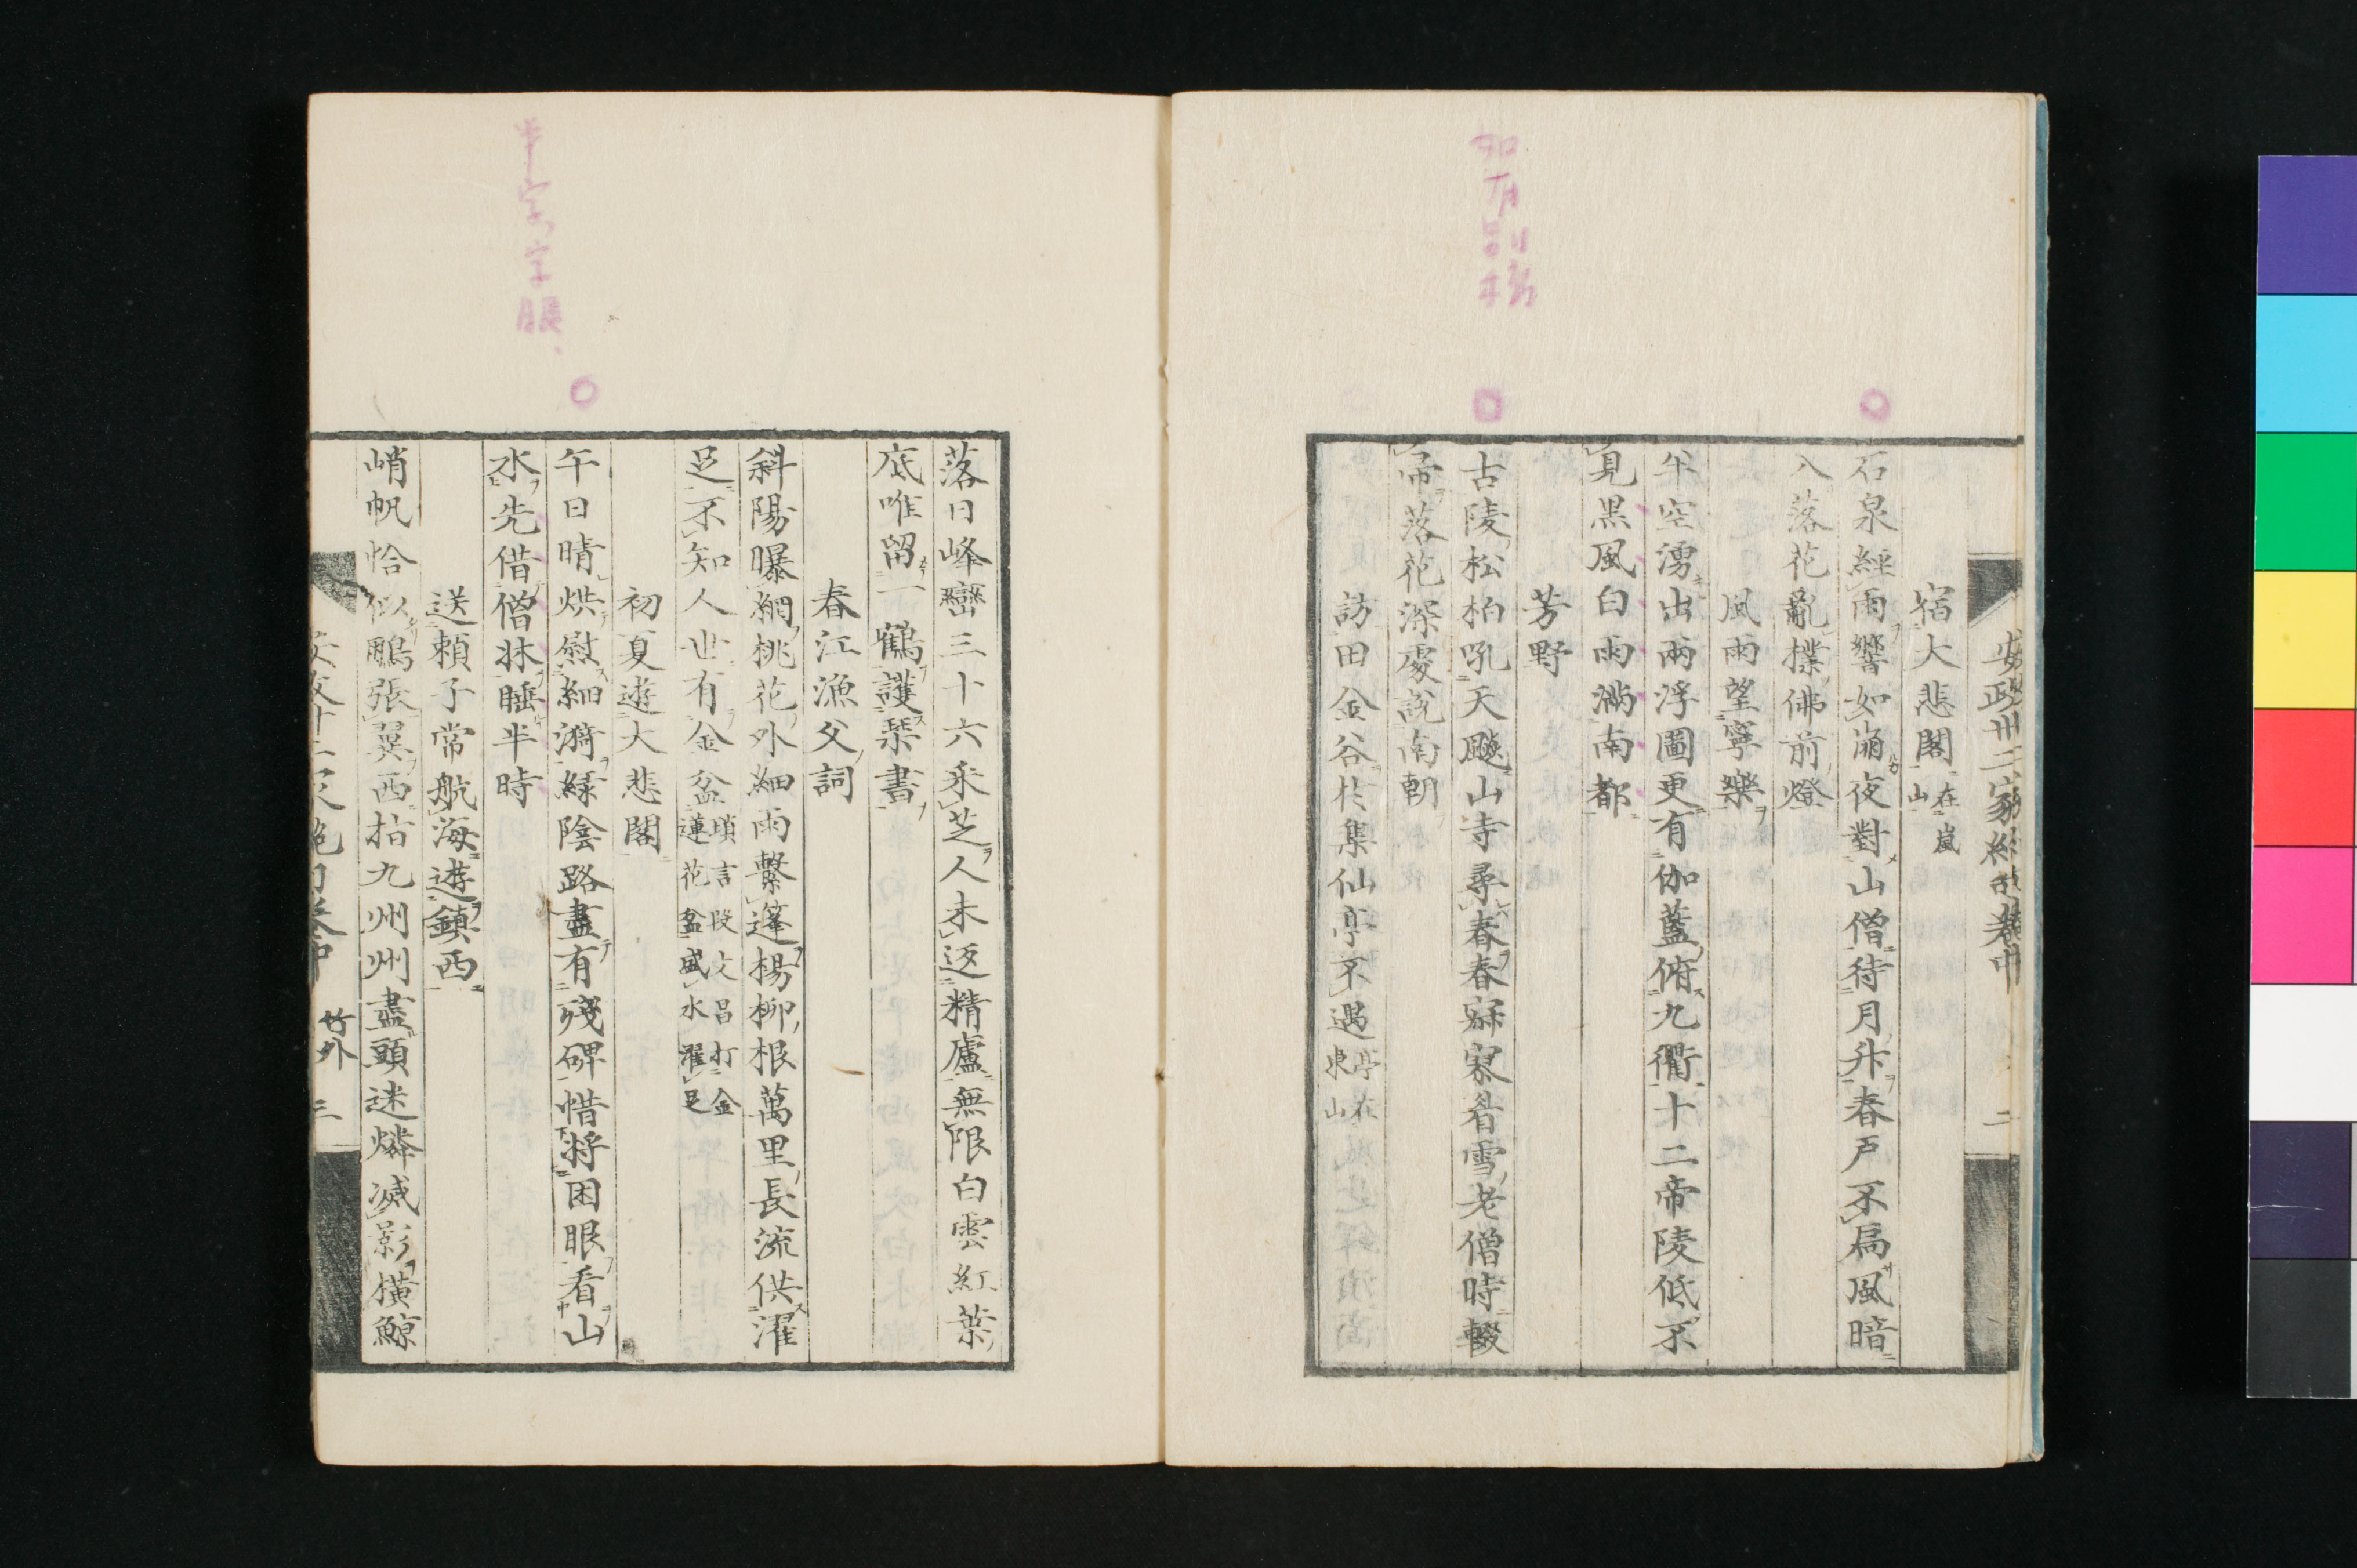 宿大悲閣 在嵐山
石泉經雨響如崩夜對山僧待月升春戶不扃風暗
入落花亂撲佛前燈
風雨望寧樂
半空湧出兩浮圖更有伽藍俯九衢十二帝陵低不
見黑風白雨滿南都
芳野
古陵松柏吼天飈山寺尋春春寂寥眉雪老僧時輟
帚落花深處說南朝
訪田金谷於集仙亭不遇 亭在東山
落日峰巒三十六采芝人未返精廬無限白雲紅葉
底唯留一鶴護琴書
春江漁父詞
斜陽曝網桃花外細雨繫篷楊柳根萬里長流供濯
足不知人世有金盆 瑣言段文昌打金蓮花盆盛水濯足
初夏遊大悲閣
午日晴烘慰細漪綠陰路盡有殘碑惜將困眼看山
水先借僧牀睡半時
送賴子常航海遊鎮西
峭帆恰似鵬張翼西指九州州盡頭迷燐滅影橫鯨
竹外 三
半字、字眼、